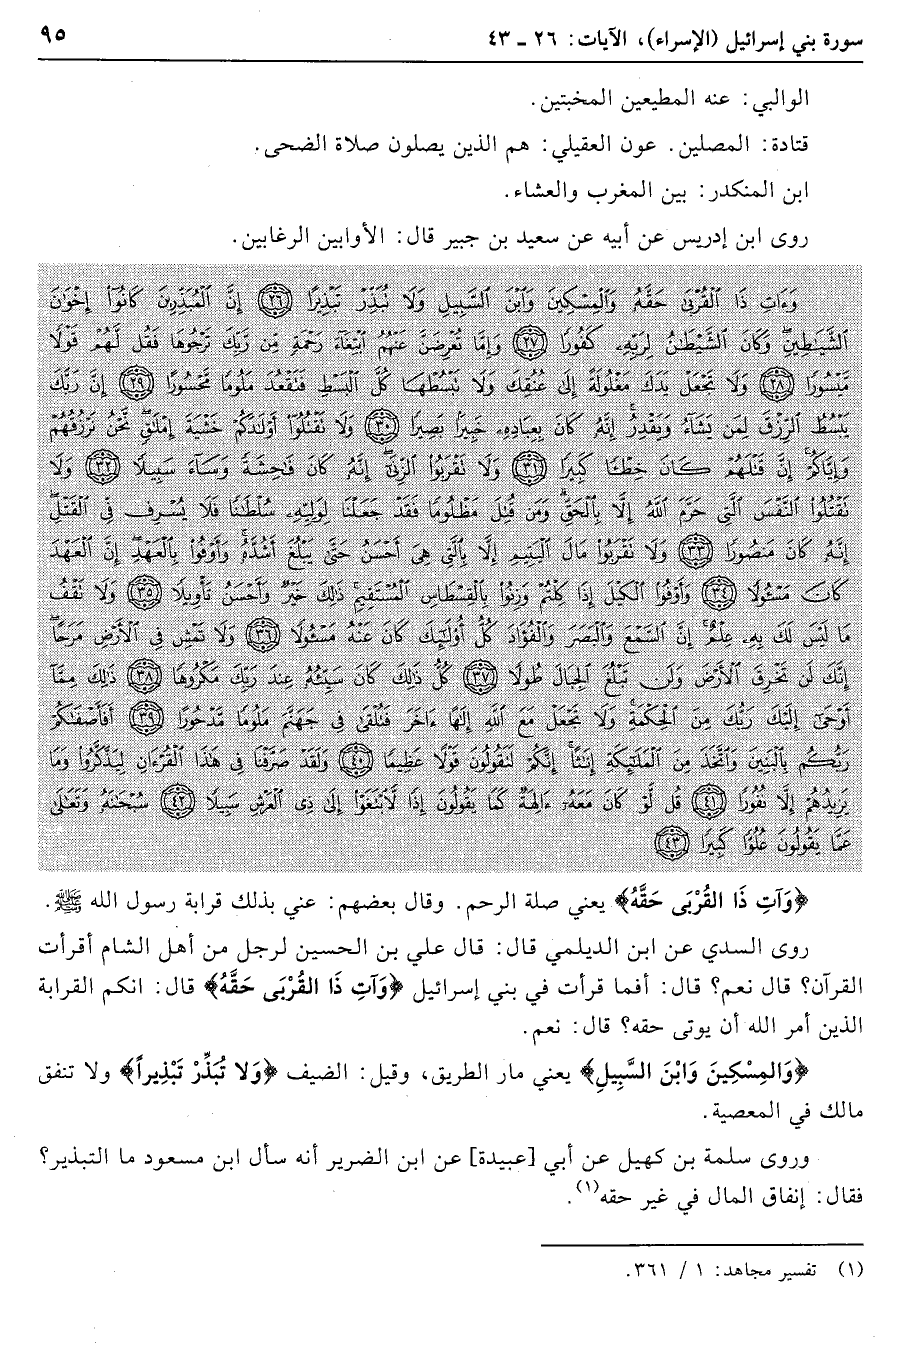 سورة بني إسرائيل (الإسراء)، الآيات: ٢٦ ـ ٤٣ ٩٥
الوالبي: عنه المطيعين المخبتين.
قتادة: المصلين. عون العقيلي: هم الذين يصلون صلاة الضحى.
ابن المنكدر: بين المغرب والعشاء.
روى ابن إدريس عن أبيه عن سعيد بن جبير قال: الأوابين الرغابين.
وَءَاتِ ذَا ٱلْقُرْبَىٰ حَقَّهُۥ وَٱلْمِسْكِينَ وَٱبْنَ ٱلسَّبِيلِ وَلَا نُبَذِّرْ تَبْذِيرًا ﴿٢٦﴾ إِنَّ ٱلْمُبَذِّرِينَ كَانُوٓا۟ إِخْوَٰنَ
ٱلشَّيَٰطِينِ ۖ وَكَانَ ٱلشَّيْطَٰنُ لِرَبِّهِۦ كَفُورًا ﴿٢٧﴾ وَإِمَّا تُعْرِضَنَّ عَنْهُمُ ٱبْتِغَآءَ رَحْمَةٍ مِّن رَّبِّكَ تَرْجُوهَا فَقُل لَّهُمْ قَوْلًا
مَّيْسُورًا ﴿٢٨﴾ وَلَا تَجْعَلْ يَدَكَ مَغْلُولَةً إِلَىٰ عُنُقِكَ وَلَا تَبْسُطْهَا كُلَّ ٱلْبَسْطِ فَتَقْعُدَ مَلُومًا مَّحْسُورًا ﴿٢٩﴾ إِنَّ رَبَّكَ
يَبْسُطُ ٱلرِّزْقَ لِمَن يَشَآءُ وَيَقْدِرُ ۚ إِنَّهُۥ كَانَ بِعِبَادِهِۦ خَبِيرًۢا بَصِيرًا ﴿٣٠﴾ وَلَا تَقْتُلُوٓا۟ أَوْلَٰدَكُمْ خَشْيَةَ إِمْلَٰقٍ ۖ نَّحْنُ نَرْزُقُهُمْ
وَإِيَّاكُمْ ۚ إِنَّ قَتْلَهُمْ كَانَ خِطْـًٔا كَبِيرًا ﴿٣١﴾ وَلَا تَقْرَبُوا۟ ٱلزِّنَىٰٓ ۖ إِنَّهُۥ كَانَ فَٰحِشَةً وَسَآءَ سَبِيلًا ﴿٣٢﴾ وَلَا
تَقْتُلُوا۟ ٱلنَّفْسَ ٱلَّتِى حَرَّمَ ٱللَّهُ إِلَّا بِٱلْحَقِّ ۗ وَمَن قُتِلَ مَظْلُومًا فَقَدْ جَعَلْنَا لِوَلِيِّهِۦ سُلْطَٰنًا فَلَا يُسْرِف فِّى ٱلْقَتْلِ ۖ
إِنَّهُۥ كَانَ مَنصُورًا ﴿٣٣﴾ وَلَا تَقْرَبُوا۟ مَالَ ٱلْيَتِيمِ إِلَّا بِٱلَّتِى هِىَ أَحْسَنُ حَتَّىٰ يَبْلُغَ أَشُدَّهُۥ ۚ وَأَوْفُوا۟ بِٱلْعَهْدِ ۖ إِنَّ ٱلْعَهْدَ
كَانَ مَسْـُٔولًا ﴿٣٤﴾ وَأَوْفُوا۟ ٱلْكَيْلَ إِذَا كِلْتُمْ وَزِنُوا۟ بِٱلْقِسْطَاسِ ٱلْمُسْتَقِيمِ ۚ ذَٰلِكَ خَيْرٌ وَأَحْسَنُ تَأْوِيلًا ﴿٣٥﴾ وَلَا تَقْفُ
مَا لَيْسَ لَكَ بِهِۦ عِلْمٌ ۚ إِنَّ ٱلسَّمْعَ وَٱلْبَصَرَ وَٱلْفُؤَادَ كُلُّ أُو۟لَٰٓئِكَ كَانَ عَنْهُ مَسْـُٔولًا ﴿٣٦﴾ وَلَا تَمْشِ فِى ٱلْأَرْضِ مَرَحًا ۖ
إِنَّكَ لَن تَخْرِقَ ٱلْأَرْضَ وَلَن تَبْلُغَ ٱلْجِبَالَ طُولًا ﴿٣٧﴾ كُلُّ ذَٰلِكَ كَانَ سَيِّئُهُۥ عِندَ رَبِّكَ مَكْرُوهًا ﴿٣٨﴾ ذَٰلِكَ مِمَّآ
أَوْحَىٰٓ إِلَيْكَ رَبُّكَ مِنَ ٱلْحِكْمَةِ ۗ وَلَا تَجْعَلْ مَعَ ٱللَّهِ إِلَٰهًا ءَاخَرَ فَتُلْقَىٰ فِى جَهَنَّمَ مَلُومًا مَّدْحُورًا ﴿٣٩﴾ أَفَأَصْفَىٰكُمْ
رَبُّكُم بِٱلْبَنِينَ وَٱتَّخَذَ مِنَ ٱلْمَلَٰٓئِكَةِ إِنَٰثًا ۚ إِنَّكُمْ لَتَقُولُونَ قَوْلًا عَظِيمًا ﴿٤٠﴾ وَلَقَدْ صَرَّفْنَا فِى هَٰذَا ٱلْقُرْءَانِ لِيَذَّكَّرُوا۟ وَمَا
يَزِيدُهُمْ إِلَّا نُفُورًا ﴿٤١﴾ قُل لَّوْ كَانَ مَعَهُۥٓ ءَالِهَةٌ كَمَا يَقُولُونَ إِذًا لَّٱبْتَغَوْا۟ إِلَىٰ ذِى ٱلْعَرْشِ سَبِيلًا ﴿٤٢﴾ سُبْحَٰنَهُۥ وَتَعَٰلَىٰ
عَمَّا يَقُولُونَ عُلُوًّا كَبِيرًا ﴿٤٣﴾
﴿وَآتِ ذَا القُرْبَى حَقَّهُ﴾ يعني صلة الرحم. وقال بعضهم: عني بذلك قرابة رسول الله ﷺ.
روى السدي عن ابن الديلمي قال: قال علي بن الحسين لرجل من أهل الشام أقرأت
القرآن؟ قال نعم؟ قال: أفما قرأت في بني إسرائيل ﴿وَآتِ ذَا القُرْبَى حَقَّهُ﴾ قال: انكم القرابة
الذين أمر الله أن يوتى حقه؟ قال: نعم.
﴿وَالمِسْكِينَ وَابْنَ السَّبِيلِ﴾ يعني مار الطريق، وقيل: الضيف ﴿وَلا تُبَذِّرْ تَبْذِيراً﴾ ولا تنفق
مالك في المعصية.
وروى سلمة بن كهيل عن أبي [عبيدة] عن ابن الضرير أنه سأل ابن مسعود ما التبذير؟
فقال: إنفاق المال في غير حقه(١).
(١) تفسير مجاهد: ١ / ٣٦١.